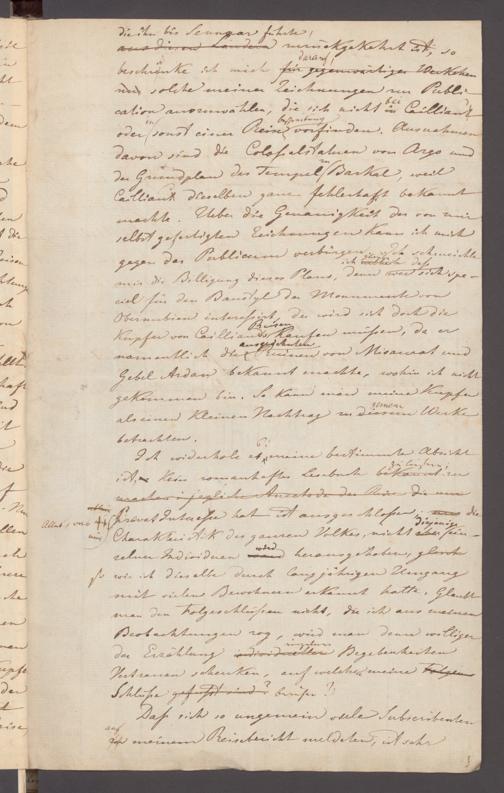 die ihn bis Sennaar führte,
aus diesen Landen zurückgekehrt ist, so
beschränke ich mich darauf für gegenwärtiges
und solche meiner Zeichnungen zur Publi-
cation auszuwählen, die sich nicht bei Cailliaud
oder in sonst einer Reisebeschreibung vorfinden. Ausnahmen
davon sind die Colossalstatuen von Argo und
der Grundplan des Tempel zu Barkal, weil
Cailliaud dieselben ganz fehlerhaft bekannt
machte. Ueber die Genauigkeit der von mir
selbst gefertigten Zeichnungen kann ich mich
gegen das Publicum verbürgen. Ich schmeichle
mir die Billigung dieses Plans, denn wer sich spe-
ciel für den Baustyl der Monumente von
Obernubien interessirt, der wird sich doch die
Kupfer von Cailliaud's Reisen kaufen müssen, da er
namentlich die ausgedehnten Ruinen von Mesaurat und
Gebel Ardan bekannt machte, wohin ich nicht
gekommen bin. So kann man meine Kupfer
als einen kleinen Nachtrag zu diesem Werke
betrachten.
Ich wiederhole es, meine bestimmte Absicht
ist, kein romanhaftes Lesebuch zu
machen; jegliche Anecdote der Reise die nur
Privat Interesse hat ist ausgeschlossen; die
Charakteristik des ganzen Volkes, nicht diejenige ein-
zelner Individuen wird herausgehoben, gleich
so wie ich dieselbe durch langjährigen Umgang
mit vielen Bewohnern erkannt hatte. Glaubt
man den Folgeschlüssen nicht, die ich aus meinen
Beobachtungen zog, wird man denn williger
der Erzählung individueller Begebenheiten
Vertrauen schenken, auf welche meine Folgen
Schlüsse gestützt sind?
Daß sich so ungemein viele Subscribenten
auf meinem Reisebericht meldeten, ist sehr